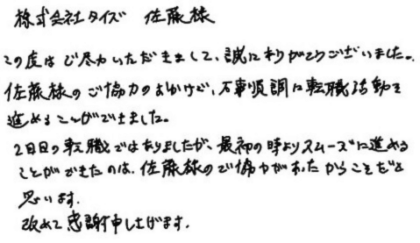 株式会社タイズ 佐藤様
この度はご尽力いただきまして、誠にありがとうございました。
佐藤様のご協力のおかげで、万事順調に転職活動を
進めることができました。
2回目の転職ではありましたが、最初の時よりスムーズに進める
ことができたのは、佐藤様のご協力があったからこそだと
思います。
改めて感謝申し上げます。